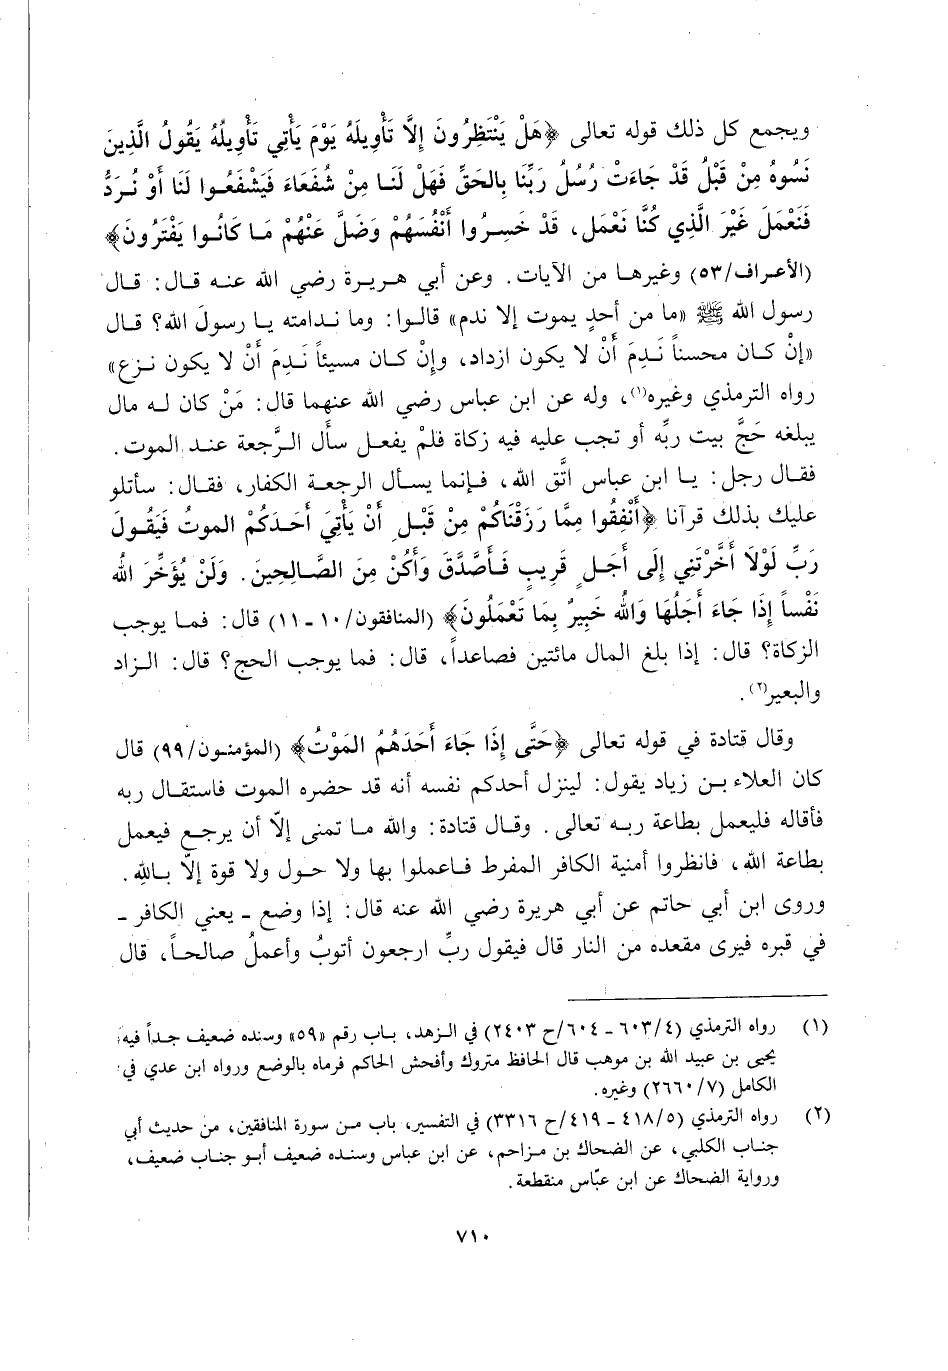 ويجمع كل ذلك قوله تعالى ﴿هَلْ يَنْتَظِرُونَ إِلَّا تَأْوِيلَهُ يَوْمَ يَأْتِي تَأْوِيلُهُ يَقُولُ الَّذِينَ
نَسُوهُ مِنْ قَبْلُ قَدْ جَاءَتْ رُسُلُ رَبِّنَا بِالحَقِّ فَهَلْ لَنَا مِنْ شُفَعَاءَ فَيَشْفَعُوا لَنَا أَوْ نُرَدُّ
فَنَعْمَلَ غَيْرَ الَّذِي كُنَّا نَعْمَل، قَدْ خَسِرُوا أَنْفُسَهُمْ وَضَلَّ عَنْهُمْ مَا كَانُوا يَفْتَرُونَ﴾
(الأعراف/٥٣) وغيرها من الآيات. وعن أبي هريرة رضي الله عنه قال: قال
رسول الله ﷺ «ما من أحدٍ يموت إلا ندم» قالوا: وما ندامته يا رسولَ الله؟ قال
«إنْ كان محسناً نَدِمَ أنْ لا يكون ازداد، وإنْ كان مسيئاً نَدِمَ أنْ لا يكون نزع»
رواه الترمذي وغيره(١)، وله عن ابن عباس رضي الله عنهما قال: مَنْ كان له مال
يبلغه حَجَّ بيت ربِّه أو تجب عليه فيه زكاة فلمْ يفعل سأل الرَّجعة عند الموت.
فقال رجل: يا ابن عباس اتَّق الله، فإنما يسأل الرجعة الكفار، فقال: سأتلو
عليك بذلك قرآنا ﴿أَنْفِقُوا مِمَّا رَزَقْنَاكُمْ مِنْ قَبْلِ أَنْ يَأْتِيَ أَحَدَكُمْ الموتُ فَيَقُولَ
رَبِّ لَوْلَا أَخَّرْتَنِي إِلَى أَجَلٍ قَرِيبٍ فَأَصَّدَّقَ وَأَكُنْ مِنَ الصَّالِحِينَ. وَلَنْ يُؤَخِّرَ الله
نَفْساً إِذَا جَاءَ أَجَلُهَا وَالله خَبِيرٌ بِمَا تَعْمَلُونَ﴾ (المنافقون/١٠ - ١١) قال: فما يوجب
الزكاة؟ قال: إذا بلغ المال مائتين فصاعداً، قال: فما يوجب الحج؟ قال: الزاد
والبعير(٢).
وقال قتادة في قوله تعالى ﴿حَتَّى إِذَا جَاءَ أَحَدَهُمُ المَوْتُ﴾ (المؤمنون/٩٩) قال
كان العلاء بن زياد يقول: لينزل أحدكم نفسه أنه قد حضره الموت فاستقال ربه
فأقاله فليعمل بطاعة ربه تعالى. وقال قتادة: والله ما تمنى إلاّ أن يرجع فيعمل
بطاعة الله، فانظروا أمنية الكافر المفرط فاعملوا بها ولا حول ولا قوة إلاّ بالله.
وروى ابن أبي حاتم عن أبي هريرة رضي الله عنه قال: إذا وضع - يعني الكافر -
في قبره فيرى مقعده من النار قال فيقول ربِّ ارجعون أتوبُ وأعملُ صالحاً، قال
(١) رواه الترمذي (٦٠٣/٤ - ٦٠٤/ح ٢٤٠٣) في الزهد، باب رقم «٥٩» وسنده ضعيف جداً فيه
يحيى بن عبيد الله بن موهب قال الحافظ متروك وأفحش الحاكم فرماه بالوضع ورواه ابن عدي في
الكامل (٢٦٦٠/٧) وغيره.
(٢) رواه الترمذي (٤١٨/٥ - ٤١٩/ح ٣٣١٦) في التفسير، باب من سورة المنافقين، من حديث أبي
جناب الكلبي، عن الضحاك بن مزاحم، عن ابن عباس وسنده ضعيف أبو جناب ضعيف،
ورواية الضحاك عن ابن عبّاس منقطعة.
٧١٠